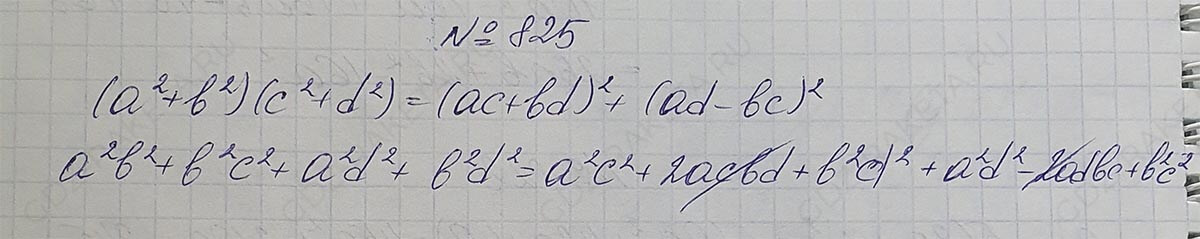 № 825
(a²+b²)(c²+d²)=(ac+bd)²+(ad-bc)²
a²b²+b²c²+a²d²+b²d²=a²c²+2acbd+b²d²+a²d²-2adbc+b²c²